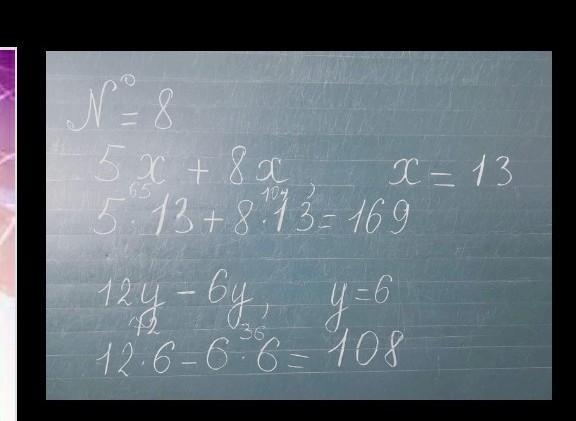 № = 8
5x + 8x, x = 13
65 104
5 · 13 + 8 · 13 = 169
12y - 6y, y = 6
72 36
12 · 6 - 6 · 6 = 108